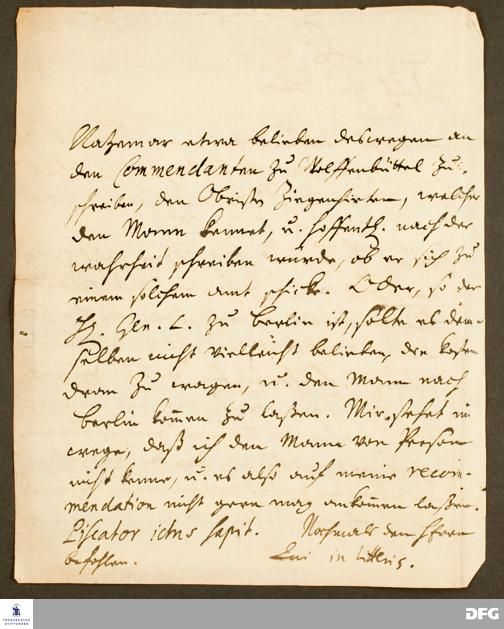 Natzemar etwa belieben deswegen an
den Commendanten zu Wolffenbüttel zu
schreiben, den Obristen Ziegenhirten, welcher
den Mann kennet, u. hoffentl. nach der
wahrheit schreiben würde, ob er sich zu
einem solchem amt schicke. Oder, so der
H. Gen. L. zu Berlin ist, solte es dem-
selben nicht vielleicht belieben, die kosten
dran zu wagen, u. den Mann nach
Berlin kom̄en zu laßen. Mir stehet im
wege, daß ich den Mann von Person
nicht kenne, u. es also auf meine recom-
mendation nicht gern mag ankom̄en laßen.
Piscator ictus sapit. Nochmals dem Herrn
befohlen. in litteris.
FRANCKESCHE
STIFTUNGEN
DFG